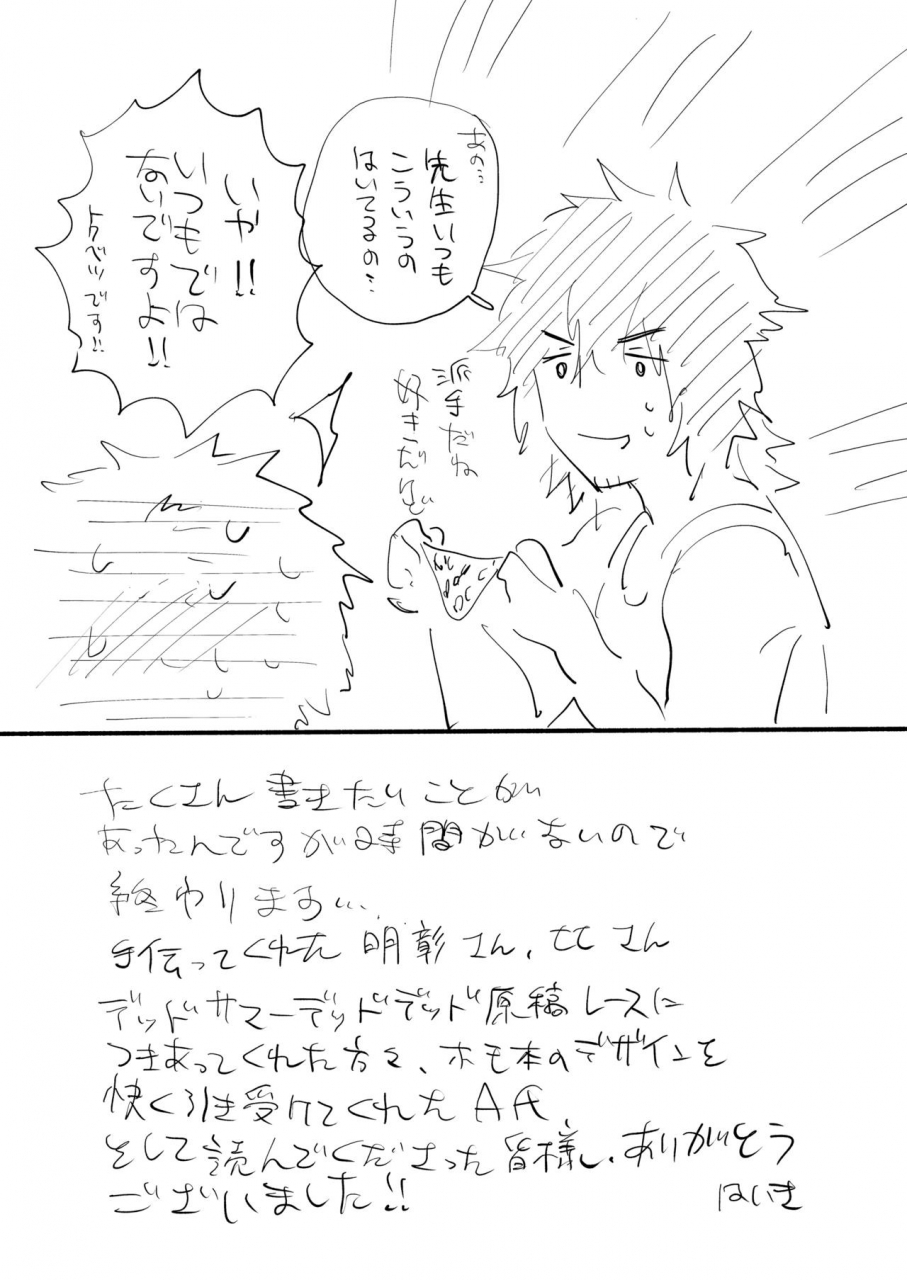 あの…
先生いつも
こういうの
はいてるの…
いや!!
いつもでは
ないですよ!!
トクベツです!!
派手だね
好きだけど
たくさん書きたいことが
あったんですが時間がないので
終わります…
手伝ってくれた明彰さん、セCさん
デッドサマーデッドデッド原稿レースに
つきあってくれた方々、ホモ本のデザインを
快く引き受けてくれたA氏、
そして読んでくださった皆様、ありがとう
ございました!!
はいき